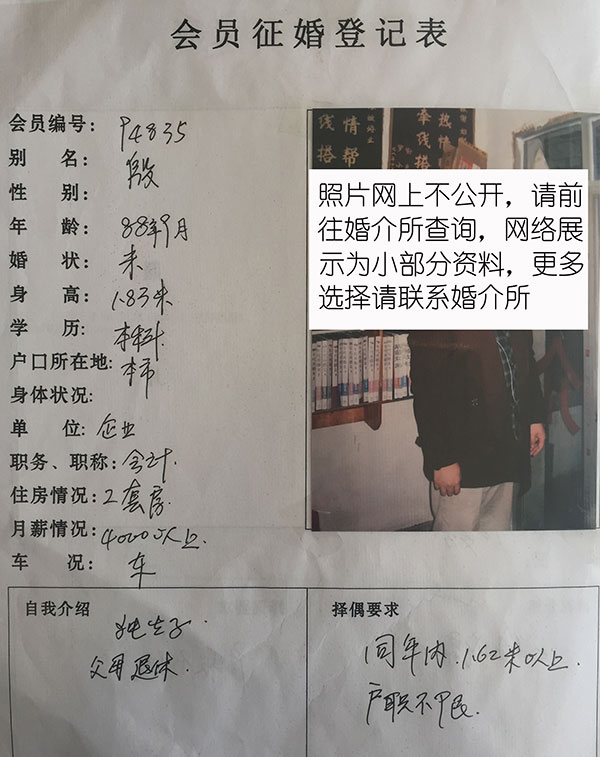 会员征婚登记表
会员编号: P4835
别 名: 段
性 别:
年 龄: 88年9月
婚 状: 未
身 高: 1.83米
学 历: 本科
户口所在地: 本市
身体状况:
单 位: 企业
职务、职称: 会计.
住房情况: 2套房
月薪情况: 4000以上
车 况: 车
自我介绍
独生子.
父母退休.
择偶要求
同年内.1.62米以上.
户职不限.
线搭
情帮
牵线搭
热情
照片网上不公开，请前
往婚介所查询，网络展
示为小部分资料，更多
选择请联系婚介所